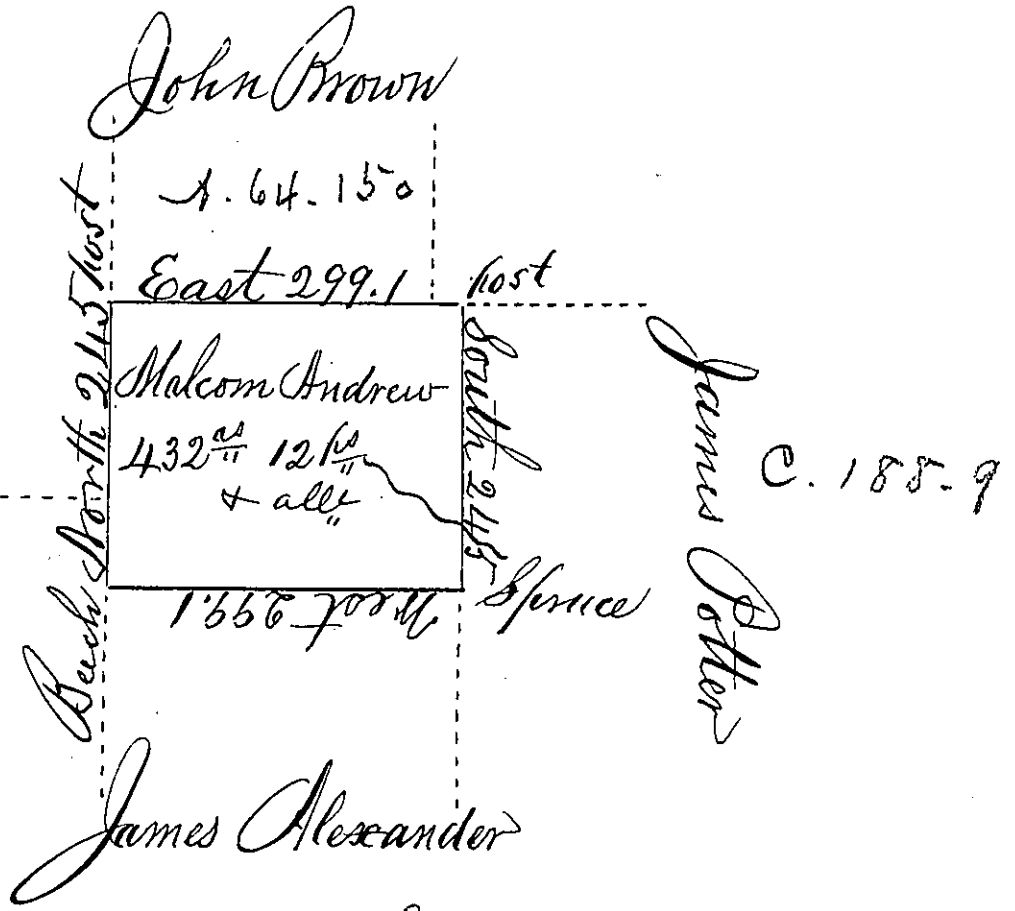 John Brown
A. 64. 150
East 299.1
post
North 245
post
Malcom Andrew
432 as 121 ps
& alle
South 245
James Potter
C. 188-9
West 299.1
Spruce
Beech
James Alexander